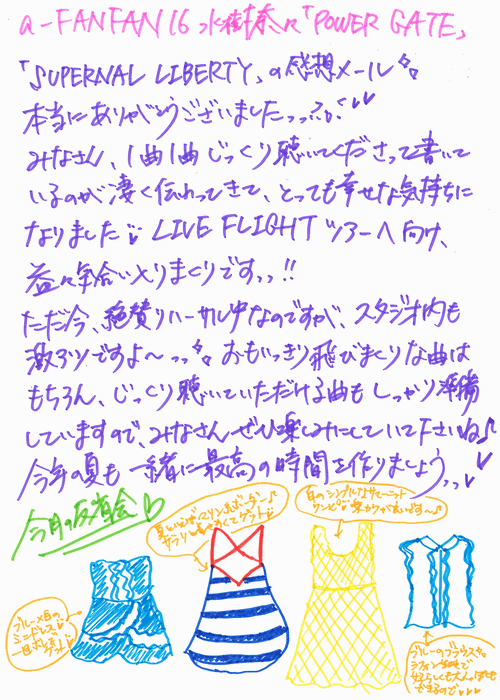 a-FANFAN16 水樹奈々「POWER GATE」
「SUPERNAL LIBERTY」の感想メール
本当にありがとうございましたっっ
みなさん、1曲1曲じっくり聴いてくださって書いて
いるのが凄く伝わってきて、とっても幸せな気持ちに
なりました LIVE FLIGHTツアーへ向け、
益々気合い入りまくりですっっ!!
ただ今、絶賛リハーサル中なのですが、スタジオ内も
激アツですよ〜っっ おもいっきり飛びまくりな曲は
もちろん、じっくり聴いていただける曲もしっかり準備
していますので、みなさんぜひ楽しみにしていて下さいね♪
今年の夏も一緒に最高の時間を作りましょうっっ♥♥
今月の反省会♡
夏といえばマリンもよーっ♪
サラリと着せたくてゲット
夏のシンプルなサマーニット
ワンピ
ブルー×白の
ミニドレス
一目ボレ
ブルーのブラウス